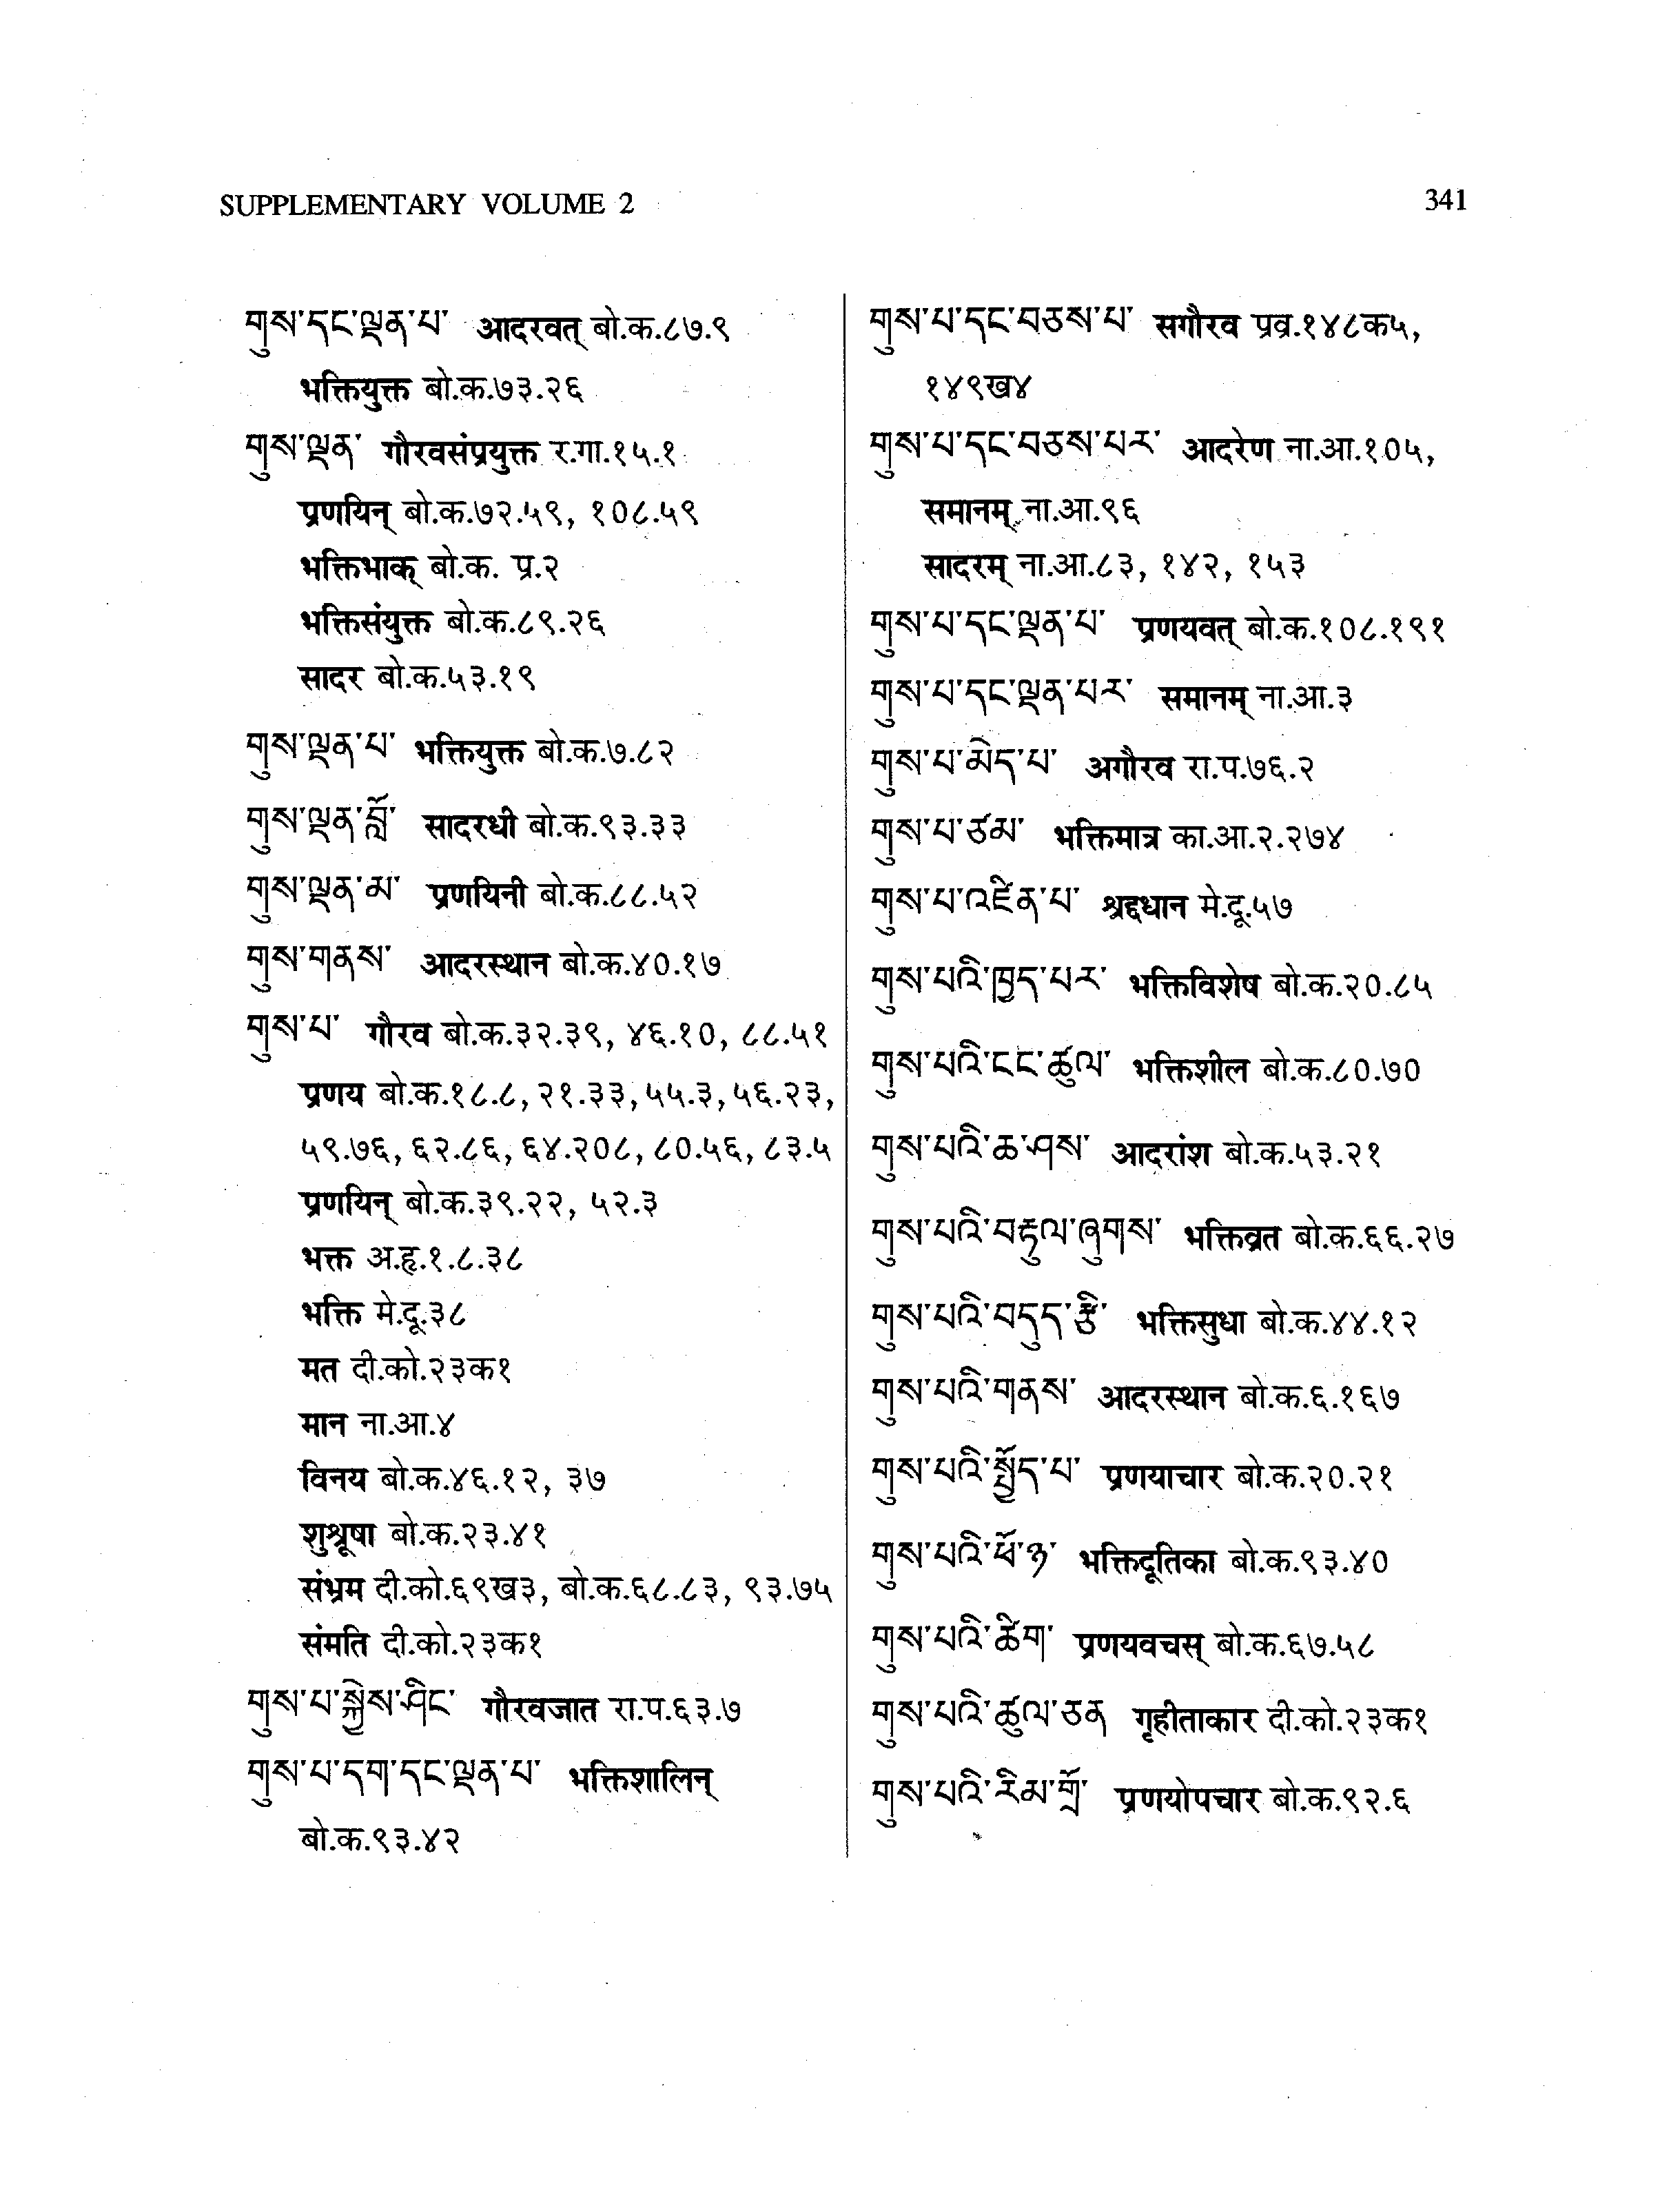 SUPPLEMENTARY VOLUME 2
341
གུས་དང་ལྡན་པ་ आदरवत् बो.क.८७.९
भक्तियुक्त बो.क.७३.२६
གུས་ལྡན་ गौरवसंप्रयुक्त र.गा.१५.१
प्रणयिन् बो.क.७२.५९, १०८.५९
भक्तिभाक् बो.क. प्र.२
भक्तिसंयुक्त बो.क.८९.२६
सादर बो.क.५३.१९
གུས་ལྡན་པ་ भक्तियुक्त बो.क.७.८२
གུས་ལྡན་བློ་ सादरधी बो.क.९३.३३
གུས་ལྡན་མ་ प्रणयिनी बो.क.८८.५२
གུས་གནས་ आदरस्थान बो.क.४०.१७
གུས་པ་ गौरव बो.क.३२.३९, ४६.१०, ८८.५१
प्रणय बो.क.१८.८, २१.३३, ५५.३, ५६.२३,
५९.७६, ६२.८६, ६४.२०८, ८०.५६, ८३.५
प्रणयिन् बो.क.३९.२२, ५२.३
भक्त अ.हृ.१.८.३८
भक्ति मे.दू.३८
मत दी.को.२३क१
मान ना.आ.४
विनय बो.क.४६.१२, ३७
शुश्रूषा बो.क.२३.४१
संभ्रम दी.को.६९ख३, बो.क.६८.८३, ९३.७५
संमति दी.को.२३क१
གུས་པ་སྐྱེས་ཤིང་ गौरवजात रा.प.६३.७
གུས་པ་དག་དང་ལྡན་པ་ भक्तिशालिन्
बो.क.९३.४२
གུས་པ་དང་བཅས་པ་ सगौरव प्रव्र.१४८क५,
१४९ख४
གུས་པ་དང་བཅས་པར་ आदरेण ना.आ.१०५,
समानम् ना.आ.९६
सादरम् ना.आ.८३, १४२, १५३
གུས་པ་དང་ལྡན་པ་ प्रणयवत् बो.क.१०८.१९१
གུས་པ་དང་ལྡན་པར་ समानम् ना.आ.३
གུས་པ་མེད་པ་ अगौरव रा.प.७६.२
གུས་པ་ཙམ་ भक्तिमात्र का.आ.२.२७४
གུས་པ་འཛིན་པ་ श्रद्दधान मे.दू.५७
གུས་པའི་ཁྱད་པར་ भक्तिविशेष बो.क.२०.८५
གུས་པའི་ངང་ཚུལ་ भक्तिशील बो.क.८०.७०
གུས་པའི་ཆ་ཤས་ आदरांश बो.क.५३.२१
གུས་པའི་བརྟུལ་ཞུགས་ भक्तिव्रत बो.क.६६.२७
གུས་པའི་བདུད་རྩི་ भक्तिसुधा बो.क.४४.१२
གུས་པའི་གནས་ आदरस्थान बो.क.६.१६७
གུས་པའི་སྤྱོད་པ་ प्रणयाचार बो.क.२०.२१
གུས་པའི་ཕོ་ཉ་ भक्तिदूतिका बो.क.९३.४०
གུས་པའི་ཚིག་ प्रणयवचस् बो.क.६७.५८
གུས་པའི་ཚུལ་ཅན གृहीताकार दी.को.२३क१
གུས་པའི་རིམ་གྲོ་ प्रणयोपचार बो.क.९२.६